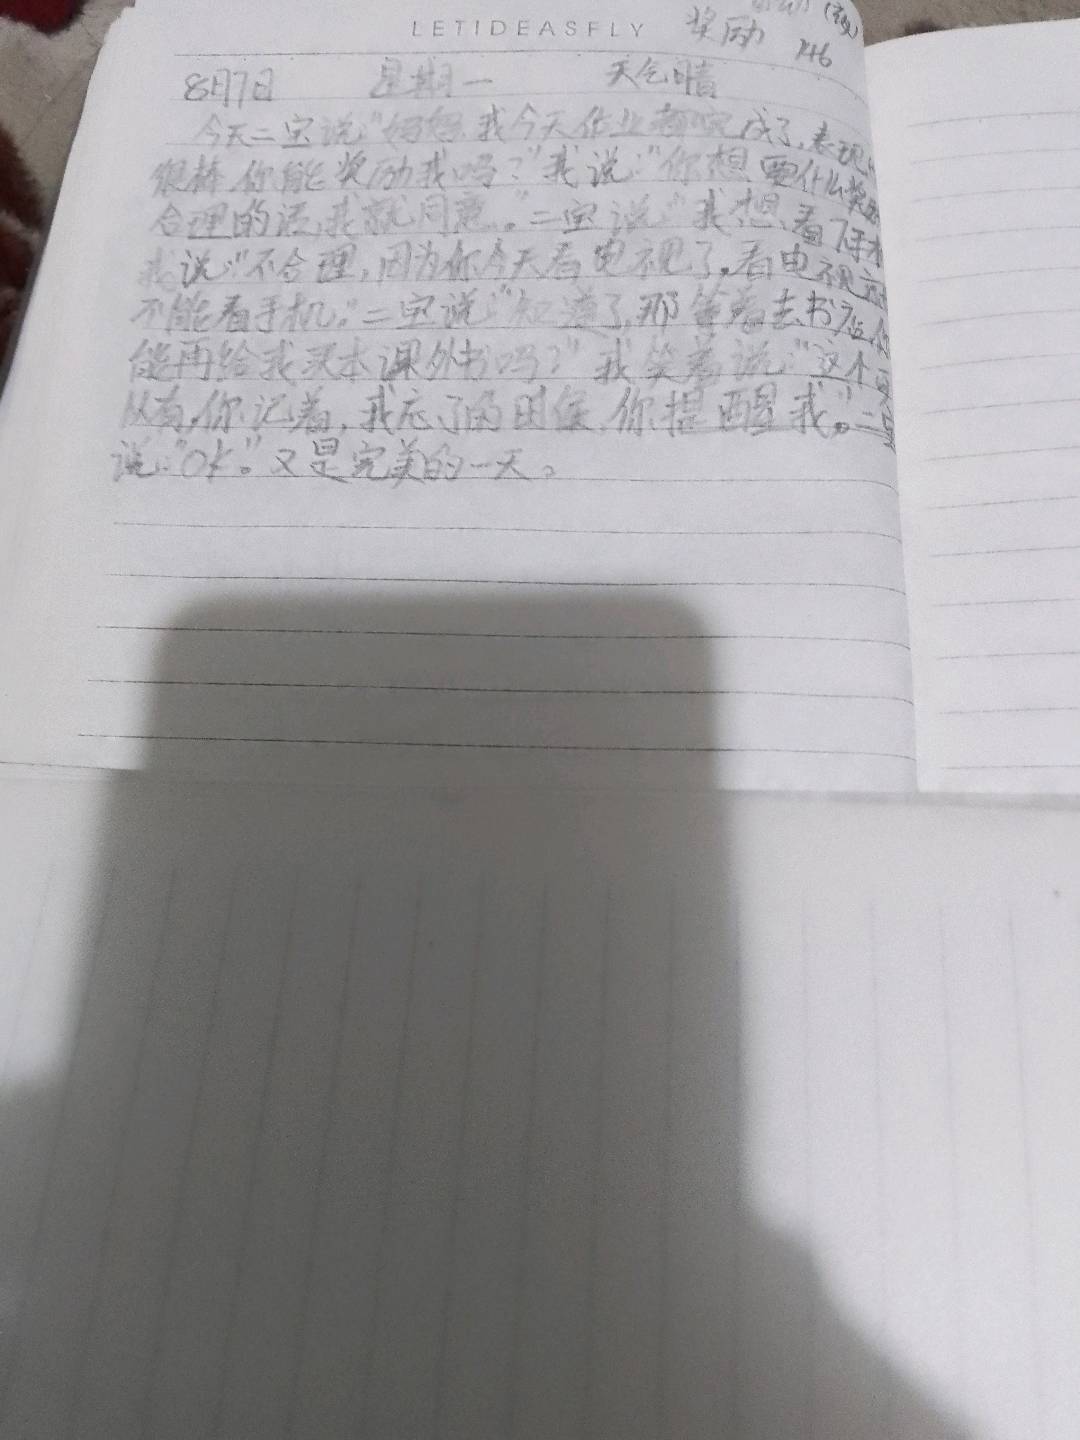 LETIDEASFLY
奖励 146
8月7日 星期一 天气晴
今天二宝说:"妈妈,我今天作业都完成了,表现
很棒,你能奖励我吗?"我说:"你想要什么奖励
合理的话,我就同意。"二宝说:"我想看下手
我说:"不合理,因为你今天看电视了,看电视
不能看手机。"二宝说:"知道了,那等着去书店,你
能再给我买本课外书吗?"我笑着说:"这个可
以有,你记着,我忘了的时候,你提醒我。"二宝
说:"OK。"又是完美的一天。